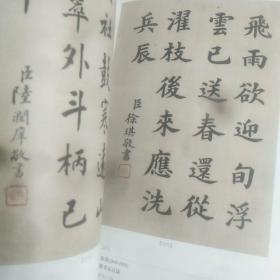 飛雨欲迎旬浮
雲已送春還從
濯枝後來應洗
兵辰
臣徐琪敬書
社鼓寒
翠外斗柄已
臣陸潤庠敬書